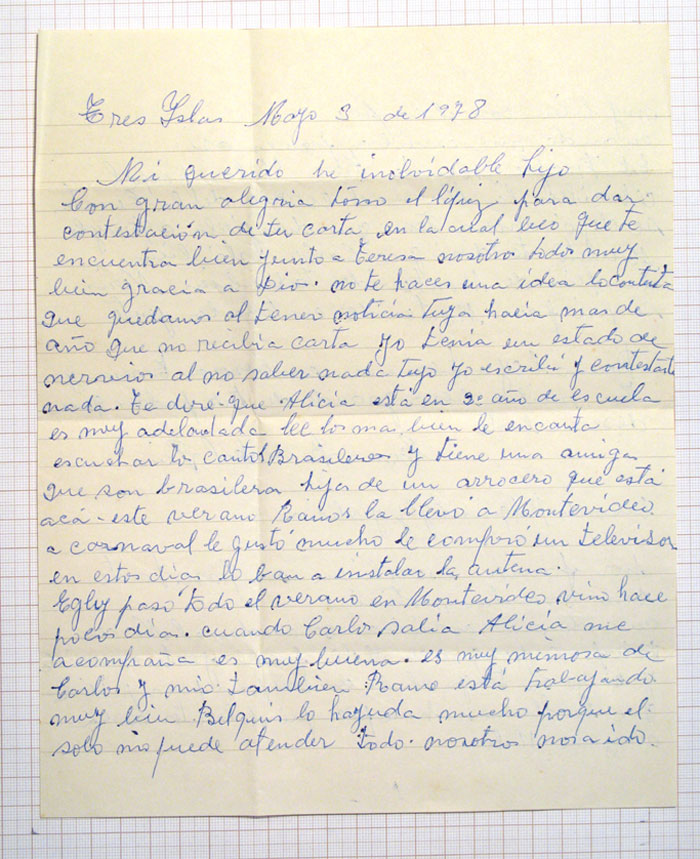 Tres Islas Mayo 3 de 1978
Mi querido he inolvidable hijo
Con gran alegria tomo el lápiz para dar
contestación de tu carta en la cual leo que te
encuentra bien junto a Teresa nosotros todos muy
bien gracia a Dios. no te haces una idea lo contenta
que quedamos al tener noticia tuya hacia mas de
año que no recibia carta yo tenia un estado de
nervios al no saber nada tuyo yo escribi y contestaste
nada. Te diré que Alicia está en 2º año de escuela
es muy adelantada lee los mas bien le encanta
escuchar los cantos Brasileros y tiene una amiga
que son brasilera hija de un arrocero que está
acá - este verano Ramos la llevó a Montevideo
a carnaval le gustó mucho le compró un televisor
en estos dias lo ban a instalar la antena.
Egly pasó todo el verano en Montevideo vino hace
pocos dias. cuando Carlos salia Alicia me
acompaña es muy buena. es muy mimosa de
Carlos y mio tambien Ramo está trabajando
muy bien Belquis lo hayuda mucho porque el
solo no puede atender todo. nosotros nos a ido